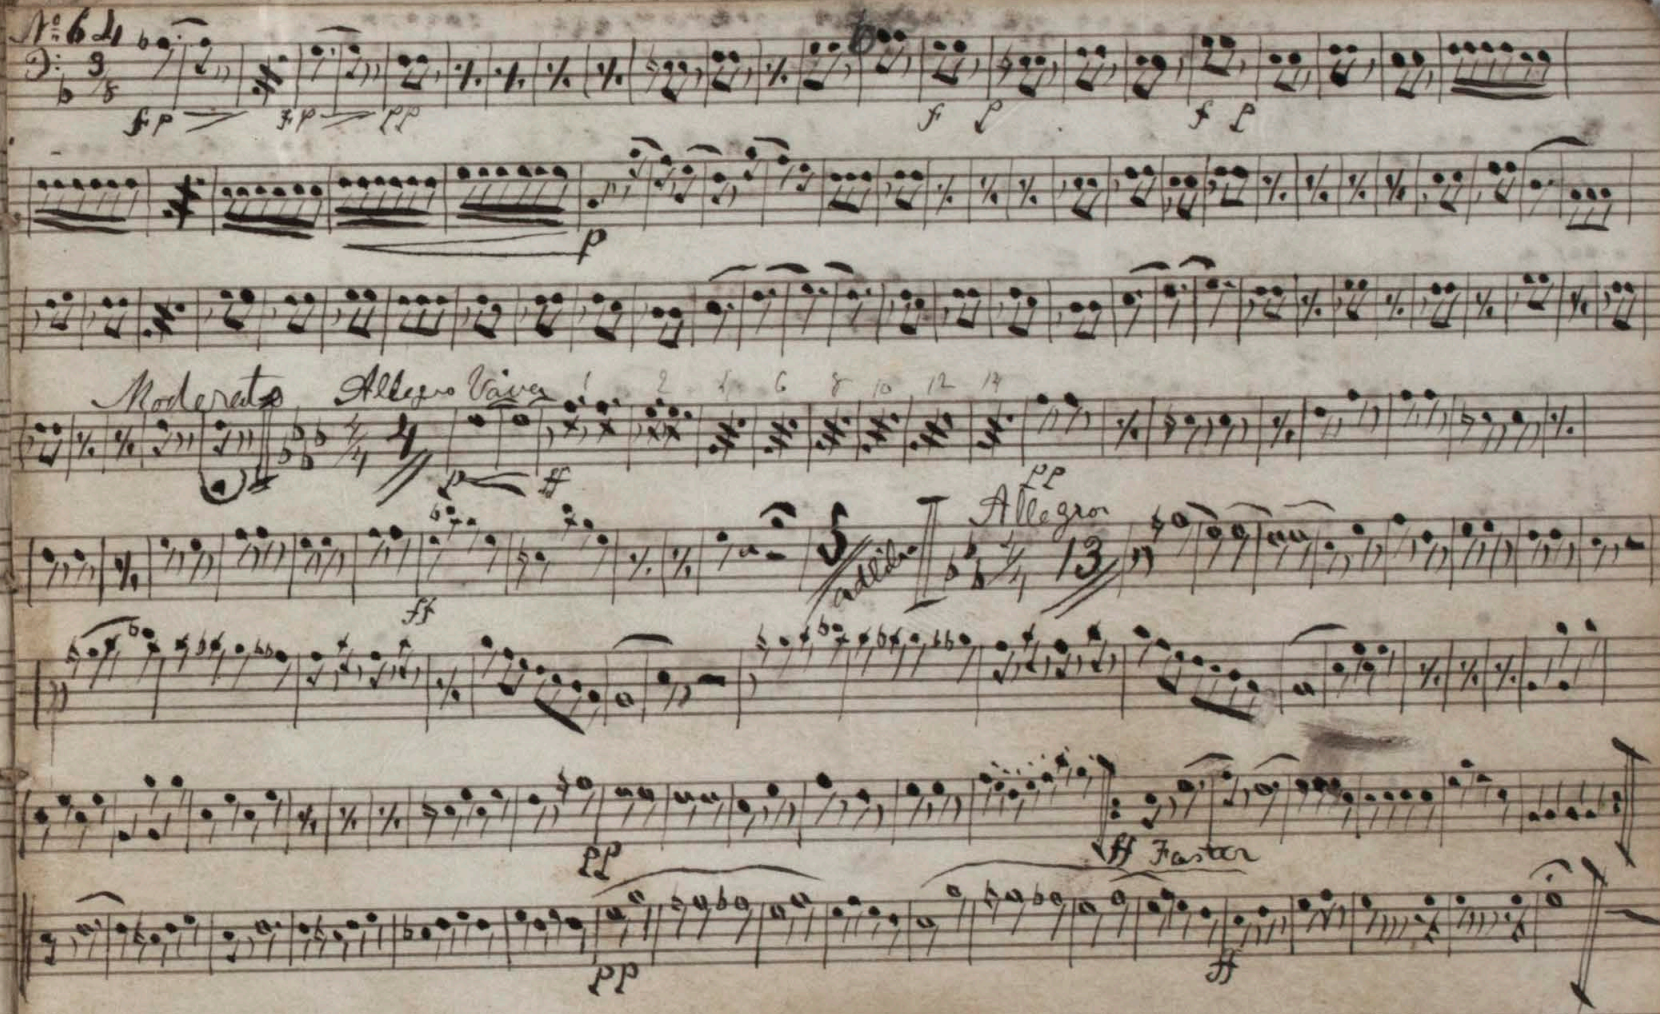 No. 64
3/8
fp fp pp f p f p
p
Moderato Allegro Vivace 1 2 4 6 8 10 12 14
4/4 4
p ff pp
5 adlib Allegro
4/4 13
ff
pp ff Faster
pp ff